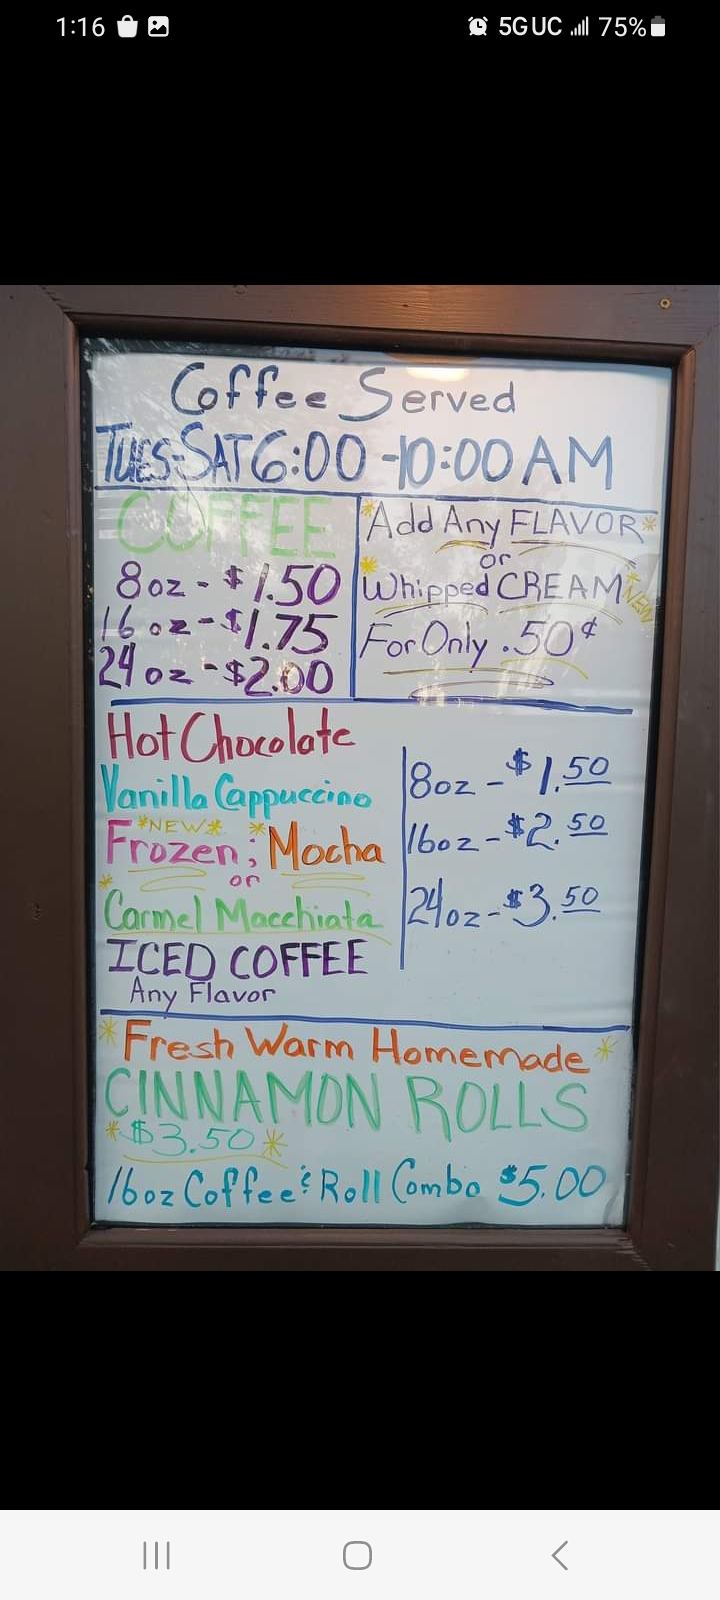 1:16
5GUC 75%
Coffee Served
TUES-SAT 6:00 -10:00 AM
COFFEE
8oz - $1.50
16 oz - $1.75
24 oz - $2.00
*Add Any FLAVOR*
or
*Whipped CREAM*
NEW
For Only .50¢
Hot Chocolate
Vanilla Cappuccino
*NEW* *
Frozen; Mocha
or
*Carmel Macchiata
ICED COFFEE
Any Flavor
8oz - $1.50
16oz - $2.50
24oz - $3.50
*Fresh Warm Homemade*
CINNAMON ROLLS
*$3.50*
16oz Coffee & Roll Combo $5.00